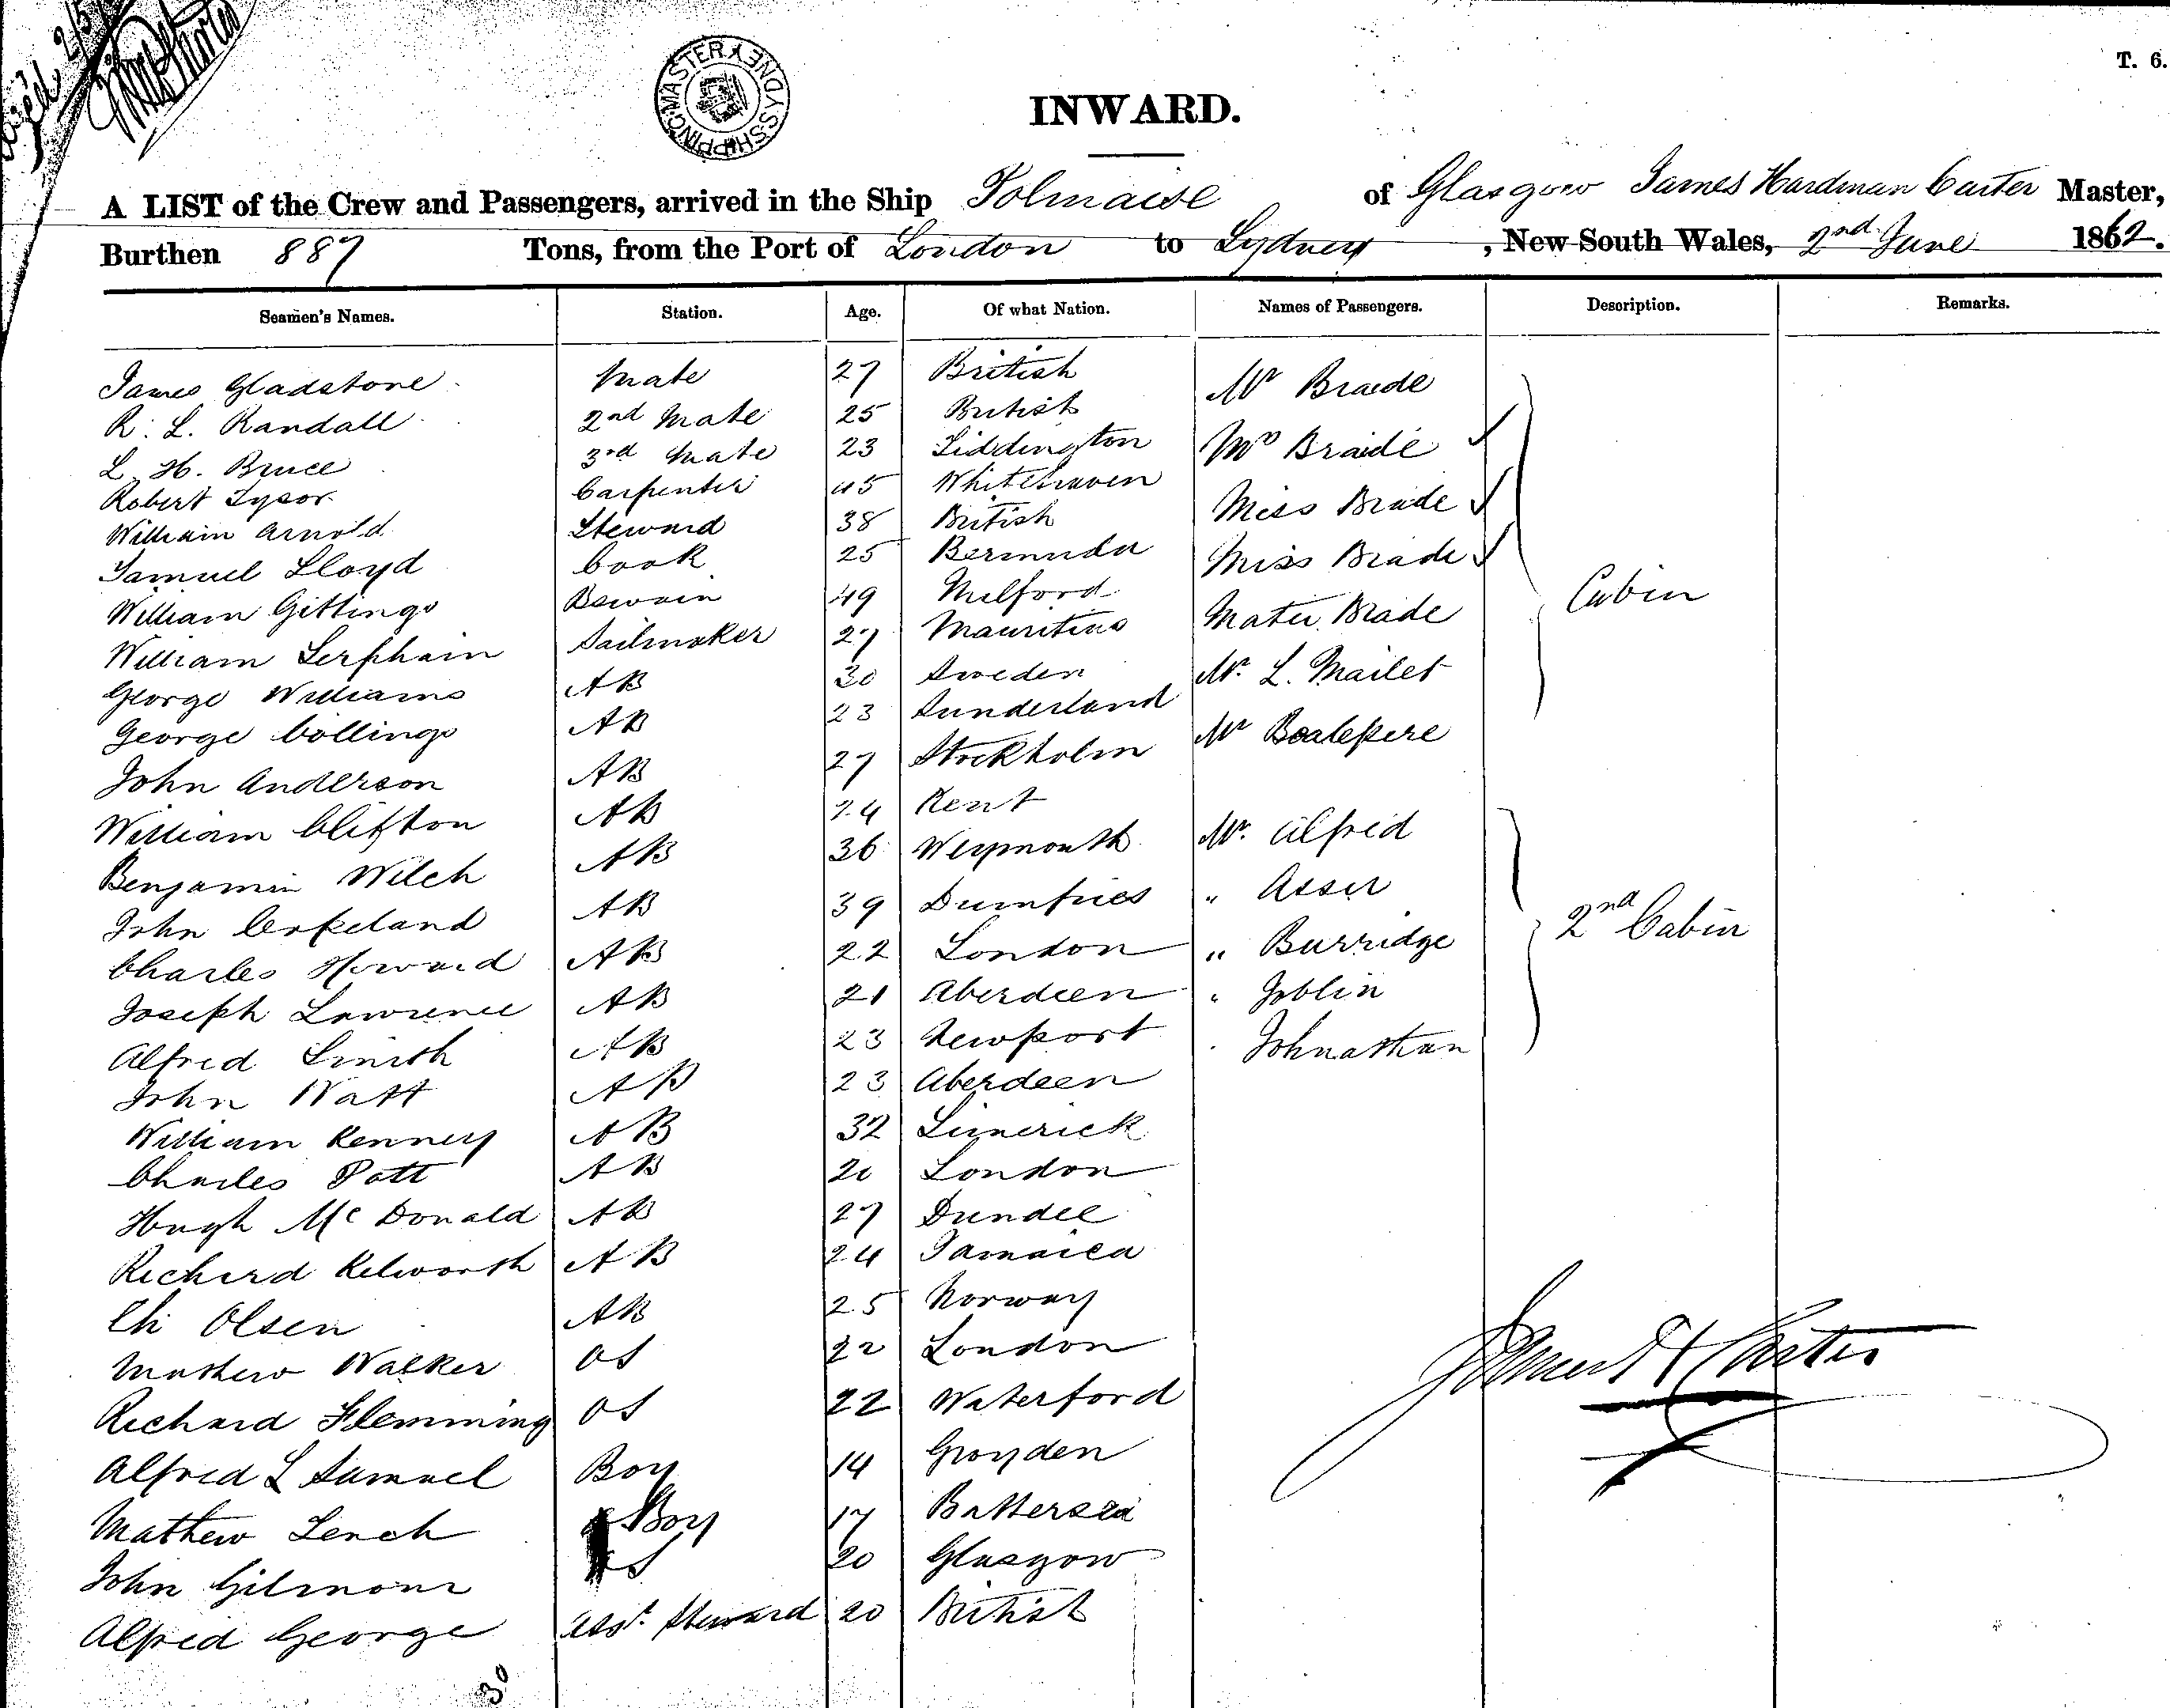 T. 6.
SHIPPING MASTER SYDNEY
INWARD.
A LIST of the Crew and Passengers, arrived in the Ship Tolmaise of Glasgow James Hardman Carter Master,
Burthen 887 Tons, from the Port of London to Sydney, New South Wales, 2nd June 1862.
Seamen's Names. Station. Age. Of what Nation. Names of Passengers. Description. Remarks.
James Gladstone Mate 27 British Mr Braide
R. L. Randall 2nd Mate 25 British
L. H. Bruce 3rd Mate 23 Liddington Mrs Braide
Robert Tysor Carpenter 45 Whitehaven
William Arnold Steward 38 British Miss Brade
Samuel Lloyd Cook 25 Bermuda Miss Brade
William Gittings Boswain 49 Milford Cabin
William Serphain Sailmaker 27 Mauritius Mater Brade
George Williams AB 30 Sweden Mr. L. Mailet
George Collings AB 23 Sunderland
John Anderson AB 27 Stockholm Mr Boalepere
William Clifton AB 24 Kent
Benjamin Welch AB 36 Weymouth Mr. Alfred
John Copeland AB 39 Dumfries " Asser
Charles Howard AB 22 London " Burridge 2nd Cabin
Joseph Lawrence AB 21 Aberdeen " Joblin
Alfred Smith AB 23 Newport " Johnathan
John Watt AB 23 Aberdeen
William Kenney AB 32 Limerick
Charles Patt AB 20 London
Hugh McDonald AB 27 Dundee
Richard Kelworth AB 24 Jamaica
Chi Olsen AB 25 Norway
Mathew Walker OS 22 London
Richard Flemming OS 22 Waterford
Alfred L Samuel Boy 14 Croyden
Mathew Lench Boy 17 Battersea
John Gilmour S 20 Glasgow
Alfred George Asst. Steward 20 British
James H Carter
30